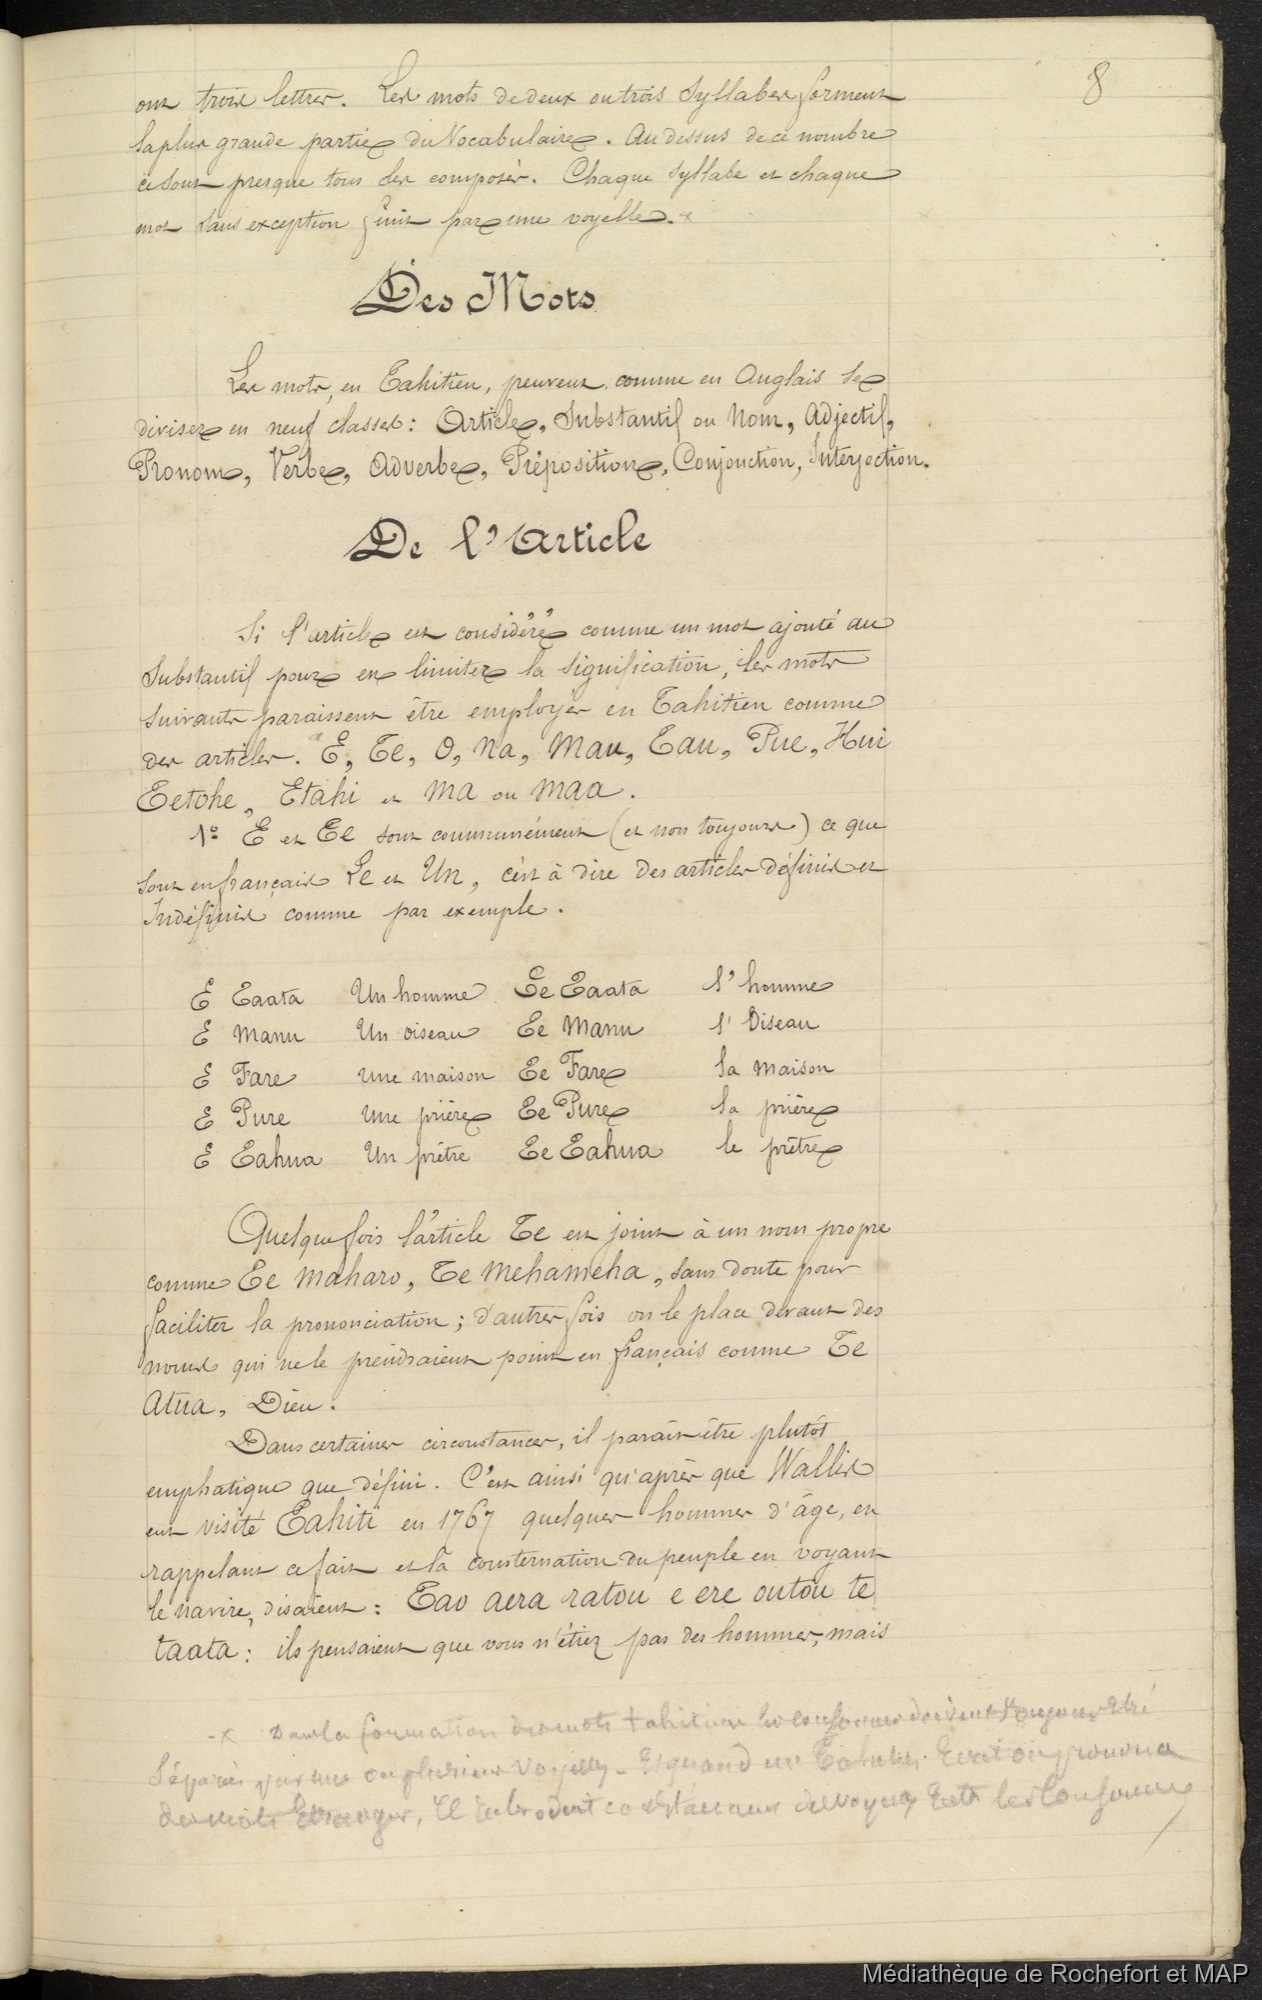 8
ont trois lettres. Les mots de deux ou trois Syllabes forment
la plus grande partie du Vocabulaire. Au dessus de ce nombre
ce sont presque tous des composés. Chaque Syllabe et chaque
mot sans exception finit par une voyelle. -x
Des Mots
Les mots, en Tahitien, peuvent, comme en Anglais se
diviser en neuf classes : Article, Substantif ou Nom, Adjectif,
Pronom, Verbe, Adverbe, Préposition, Conjonction, Interjection.
De l'Article
Si l'article est considéré comme un mot ajouté au
Substantif pour en limiter la signification, les mots
suivants paraissent être employés en Tahitien comme
des articles. E, Te, O, Na, Mau, Tau, Pue, Hui
Tetohe, Etahi et Ma ou Maa.
1° E et Te sont communément (et non toujours) ce que
sont en français Le et Un, c'est à dire des articles définis et
Indéfinis comme par exemple.
E Taata Un homme Te Taata l'homme
E Manu Un oiseau Te Manu l'Oiseau
E Fare Une maison Te Fare la Maison
E Pure Une prière Te Pure la prière
E Tahua Un prêtre Te Tahua le prêtre
Quelquefois l'article Te est joint à un nom propre
comme Te Maharo, Te Mehameha, sans doute pour
faciliter la prononciation ; d'autres fois on le place devant des
noms qui ne le prendraient point en français comme Te
Atua, Dieu.
Dans certaines circonstances, il paraît être plutôt
emphatique que défini. C'est ainsi qu'après que Wallis
eut visité Tahiti en 1767 quelques hommes d'âge, en
rappelant ce fait et la consternation du peuple en voyant
le navire, disaient : Tao aera ratou e ere outou te
taata : ils pensaient que vous n'étiez pas des hommes, mais
-x Dans la formation des mots tahitien les consonnes doivent toujours être
séparés par une ou plusieurs voyelles. Et quand un Tahitien Ecrit ou prononce
des mots Etrangers, Il introduit des voyelles Entre les Consonnes
Médiathèque de Rochefort et MAP